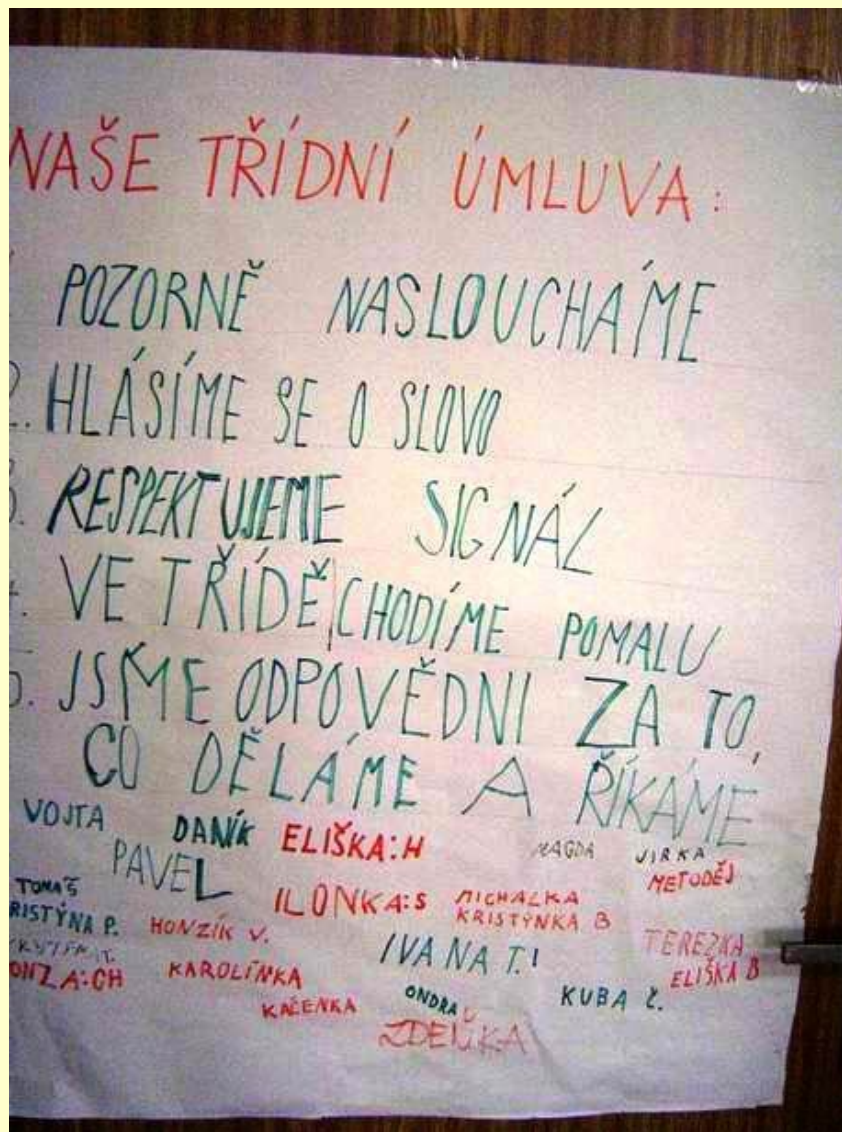 NAŠE TŘÍDNÍ ÚMLUVA:
POZORNĚ NASLOUCHÁME
2. HLÁSÍME SE O SLOVO
3. RESPEKTUJEME SIGNÁL
4. VE TŘÍDĚ CHODÍME POMALU
5. JSME ODPOVĚDNI ZA TO,
CO DĚLÁME A ŘÍKÁME
VOJTA DANÍK ELIŠKA:H MAGDA JIRKA
PAVEL METODĚJ
TOMAŠ ILONKA:S MICHALKA
RISTÝNA P. HONZÍK V. KRISTÝNKA B
IVANA T.! TEREZKA
ONZA:CH KAROLÍNKA ELIŠKA B
KAČENKA ONDRA KUBA Č.
ZDEŇKA